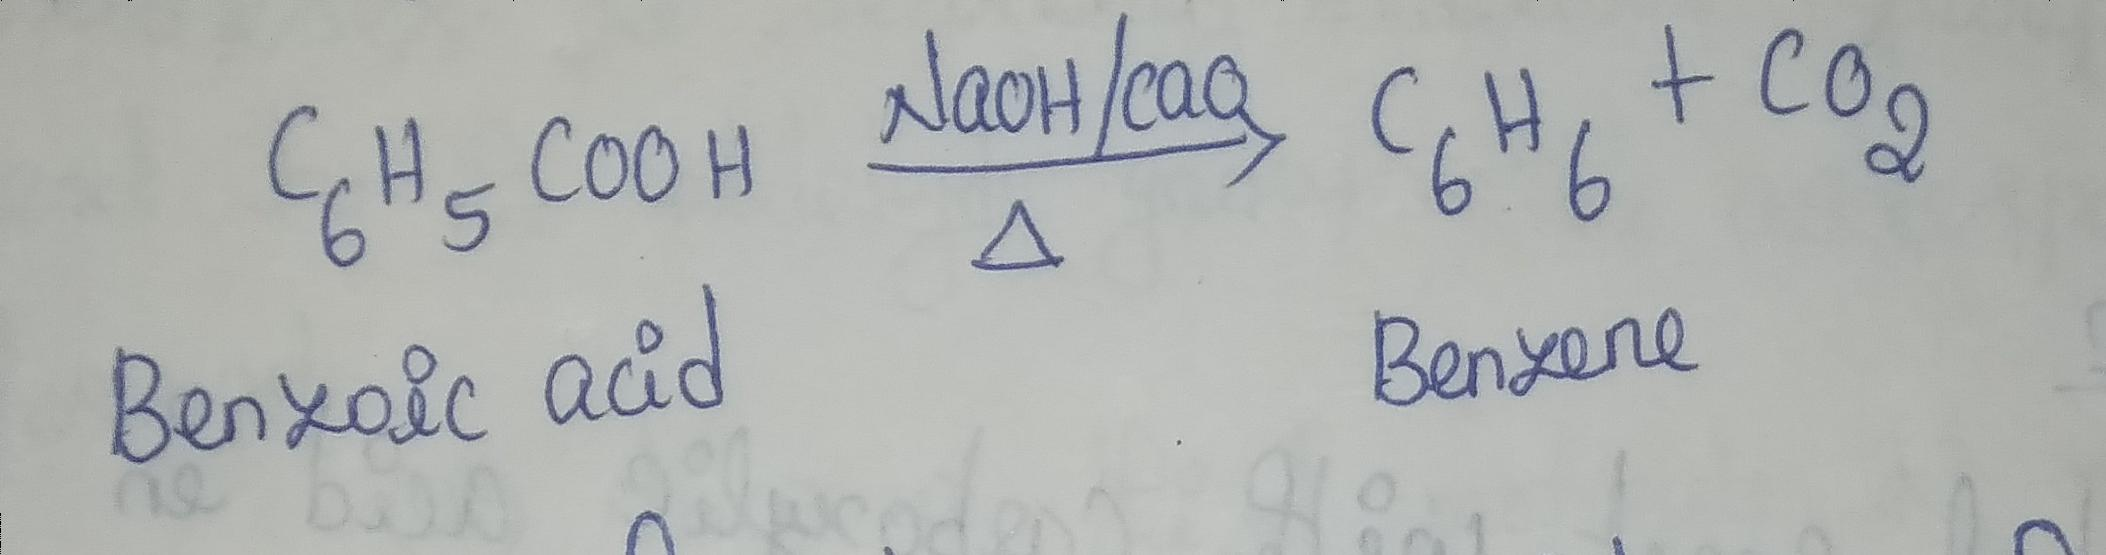 C6H5COOH NaOH/CaO → C6H6 + CO2
Δ
Benzoic acid Benzene